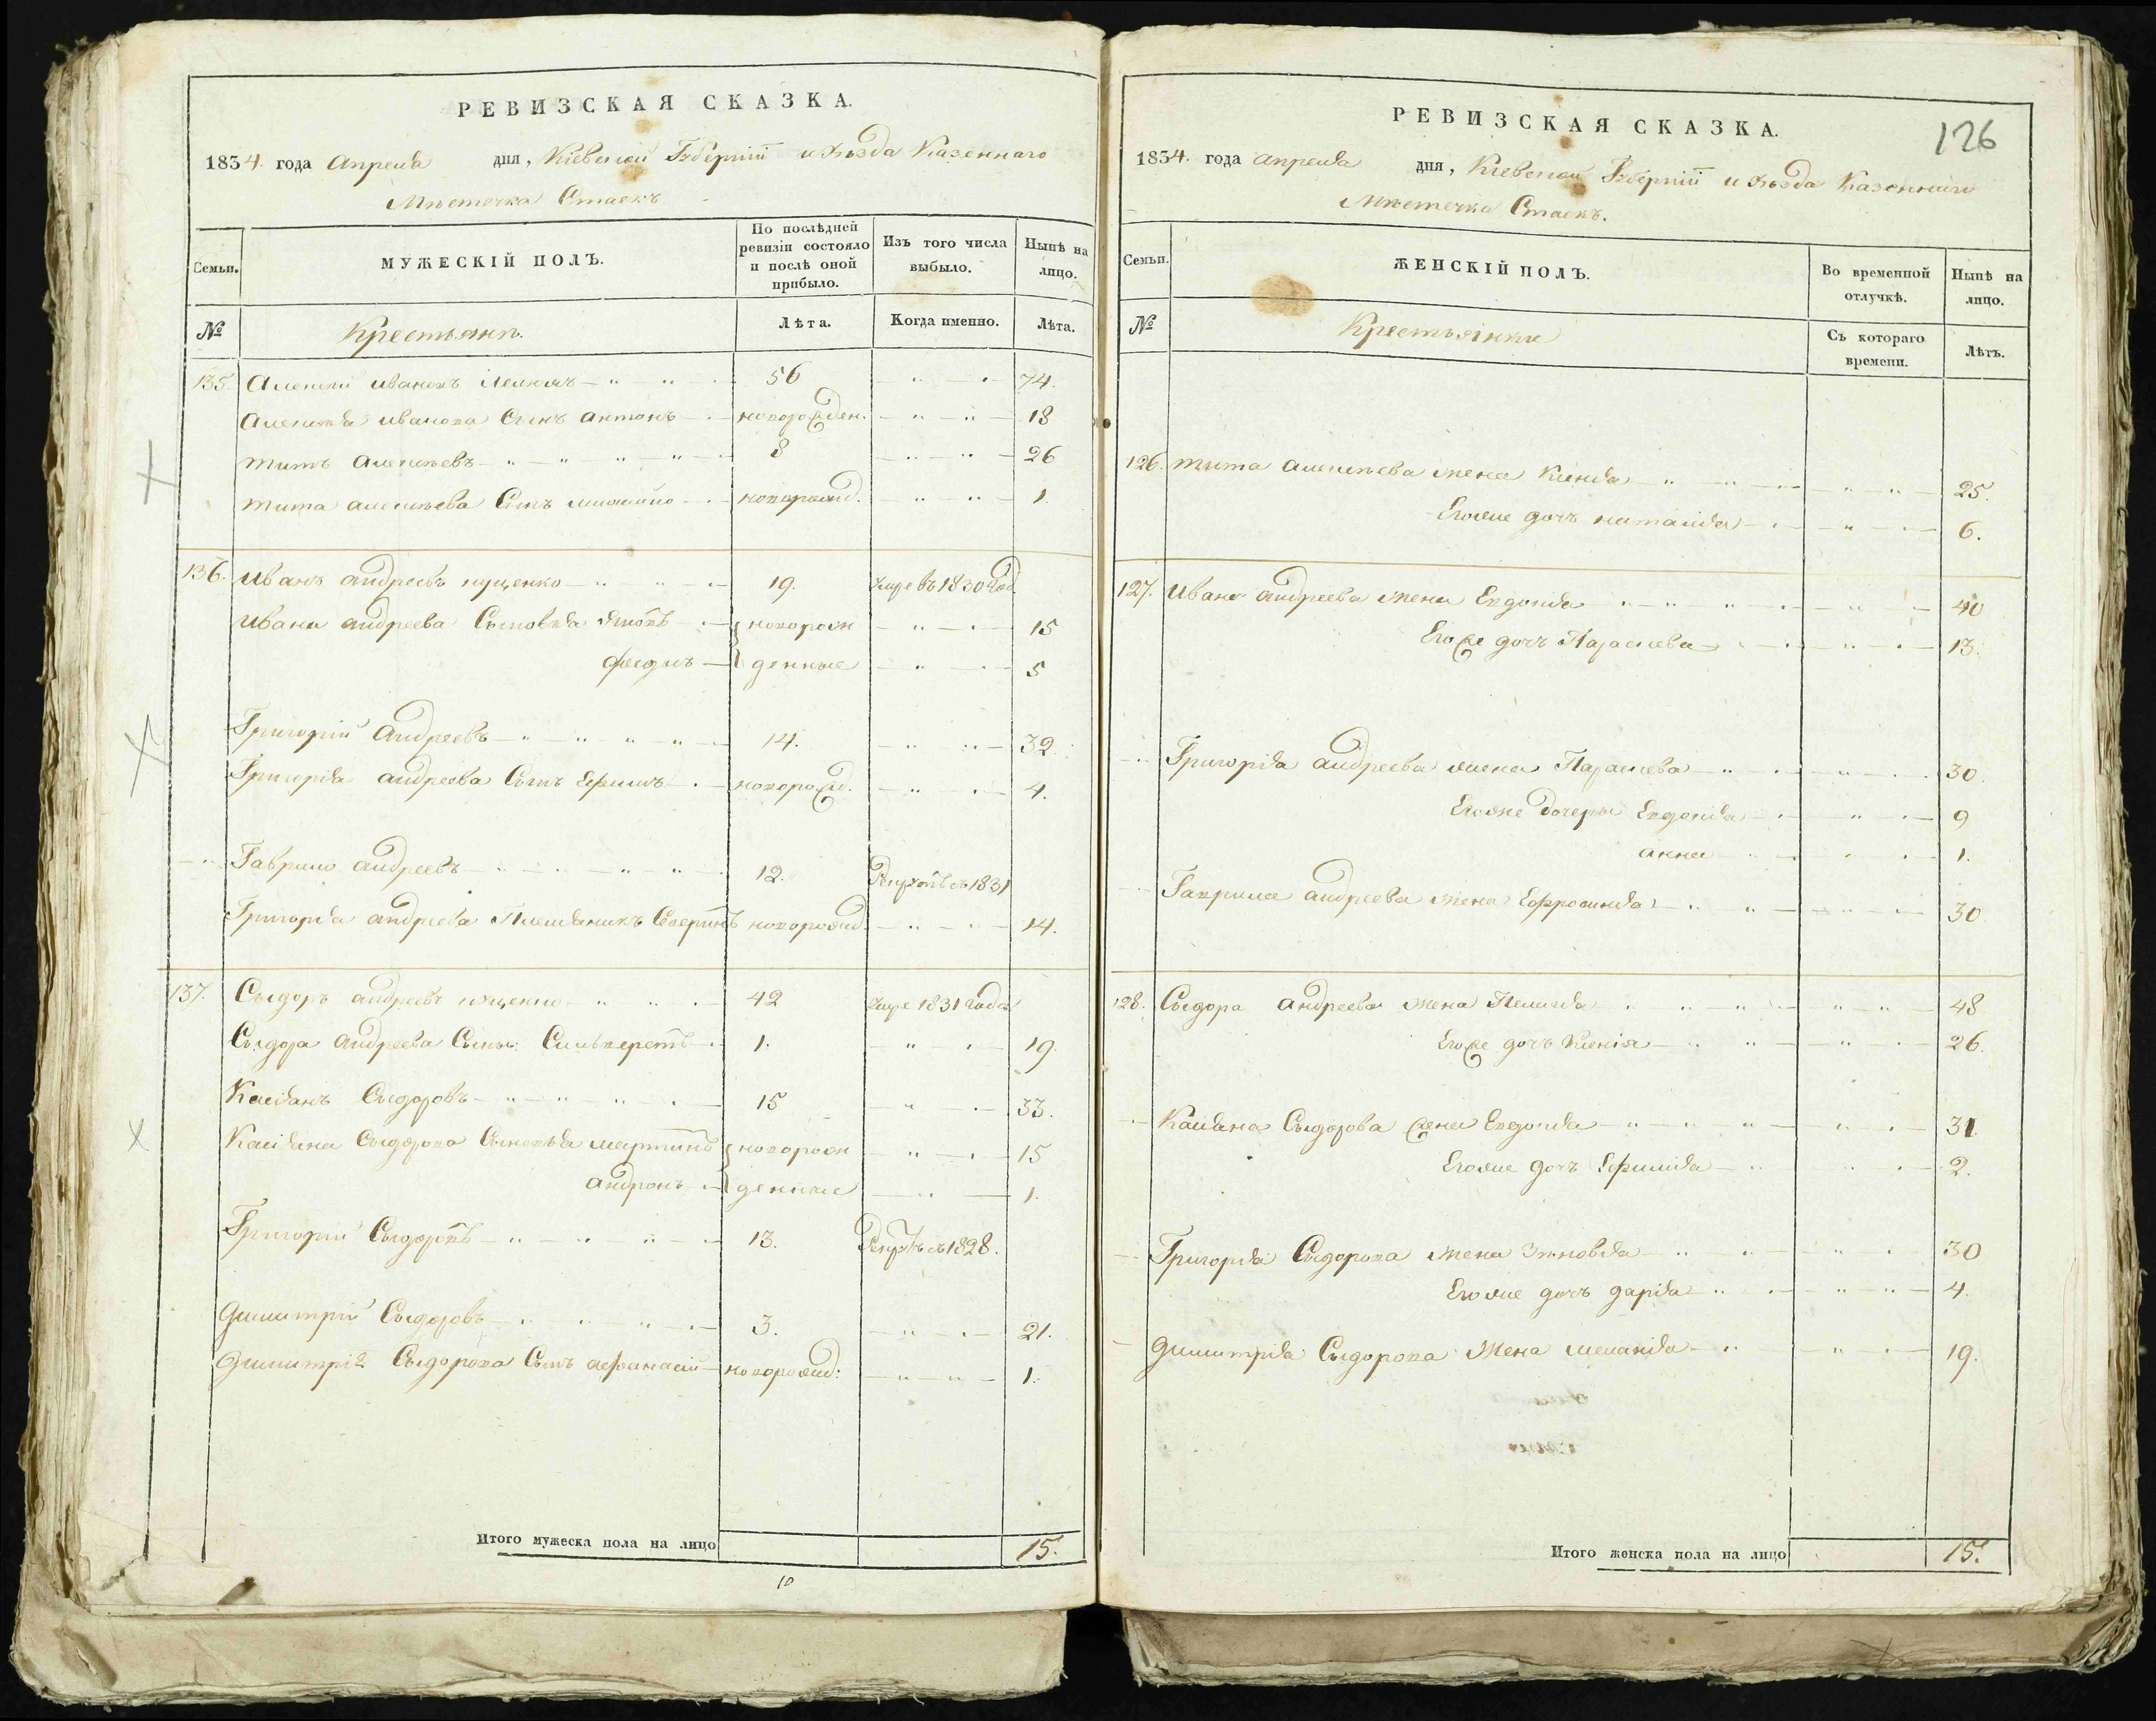 РЕВИЗСКАЯ СКАЗКА.
1834. года Апреля дня, Кіевской Губерніи и уѣзда Казеннаго
Мѣстечка Стаекъ
Семьи.
МУЖЕСКІЙ ПОЛЪ.
По послѣдней ревизіи состояло и послѣ оной прибыло.
Изъ того числа выбыло.
Нынѣ на лицо.
№
Крестьяне.
Лѣта.
Когда именно.
Лѣта.
135. Алексѣй Ивановъ 56 74.
Алексѣя Иванова Сынъ Антонъ новорожден. 18
Титъ Алексѣевъ 8 26
Тита Алексѣева Сынъ новорожд. 1.
136. Иванъ Андреевъ Ищенко 19. Умре въ 1830 год
Ивана Андреева Сыновья Яковъ новорож 15
Федоръ денные 5
Григорій Андреевъ 14. 32.
Григорія Андреева Сынъ Ефимъ новорожд. 4.
Гаврило Андреевъ 12. Рекрутъ съ 1831
Григорія Андреева Племяникъ Северинъ новорожд. 14.
137. Сыдоръ Андреевъ Ищенко 42 Умре 1831 года
Сыдора Андреева Сынъ: Сильверстъ 1. 19.
Касіянъ Сыдоровъ 15 33.
Касіяна Сыдорова Сыновья Мартинъ новорож 15
Андронъ денные 1.
Григорій Сыдоровъ 13. Рекрутъ съ 1828.
Димитрій Сыдоровъ 3. 21.
Димитрія Сыдорова Сынъ Афанасій новорожд: 1.
Итого мужеска пола на лицо 15.
10
126
РЕВИЗСКАЯ СКАЗКА.
1834. года Апреля дня, Кіевской Губерніи и уѣзда Казеннаго
Мѣстечка Стаекъ.
Семьи.
ЖЕНСКІЙ ПОЛЪ.
Во временной отлучкѣ.
Нынѣ на лицо.
№
Крестьянки
Съ котораго времени.
Лѣтъ.
126. Тита Алексѣева жена 25.
Егоже дочь Наталія 6.
127. Ивана Андреева жена Евдокія 40
Егоже дочь Параскева 13.
Григорія Андреева жена Параскева 30.
Егоже дочеры Евдокія 9
Анна 1.
Гаврила Андреева жена Ефросинія 30
128. Сыдора Андреева жена Пелагія 48
Егоже дочь Ксенія 26.
Касіяна Сыдорова жена Евдокія 31.
Егоже дочь Ефимія 2.
Григорія Сыдорова жена Зѣновія 30
Егоже дочь Дарія 4.
Димитрія Сыдорова Жена Меланія 19.
Итого женска пола на лицо 15.